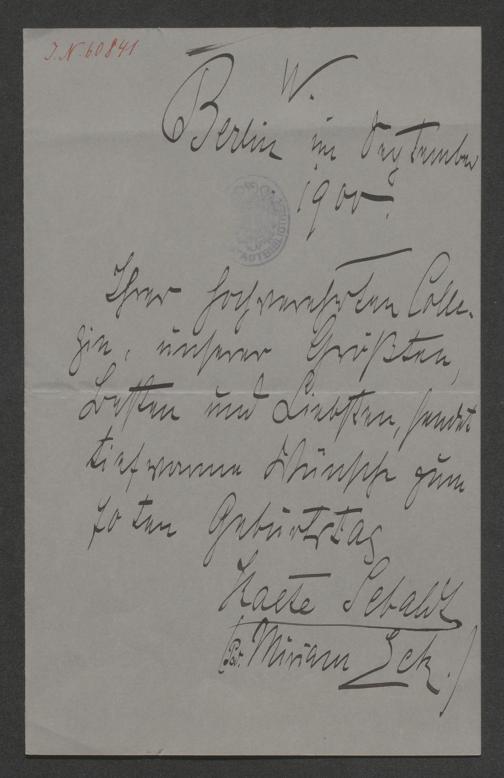 J.N. 60841
Berlin W. im September
1900.
Ihrer hochverehrten Colle-
gin, unserer Größten,
Besten und Liebsten, sendet
tiefwarme Wünsche zum
70ten Geburtstag
Kaete Sebaldt
Miriam Eck.)